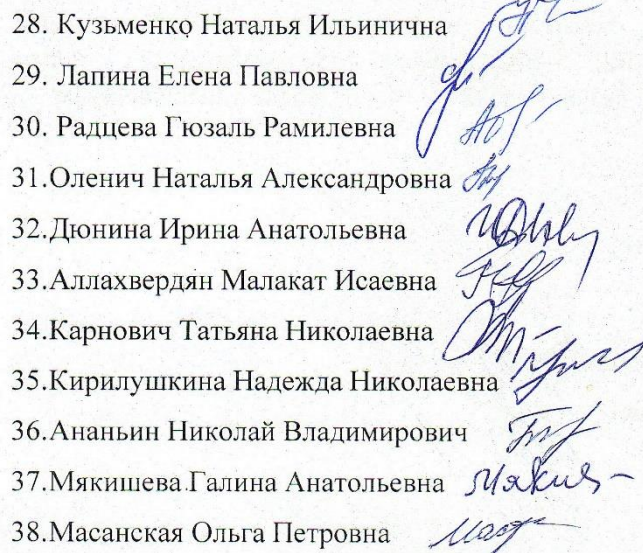 28. Кузьменко Наталья Ильинична
29. Лапина Елена Павловна
30. Радцева Гюзаль Рамилевна
31.Оленич Наталья Александровна
32.Дюнина Ирина Анатольевна
33.Аллахвердян Малакат Исаевна
34.Карнович Татьяна Николаевна
35.Кирилушкина Надежда Николаевна
36.Ананьин Николай Владимирович
37.Мякишева Галина Анатольевна
38.Масанская Ольга Петровна